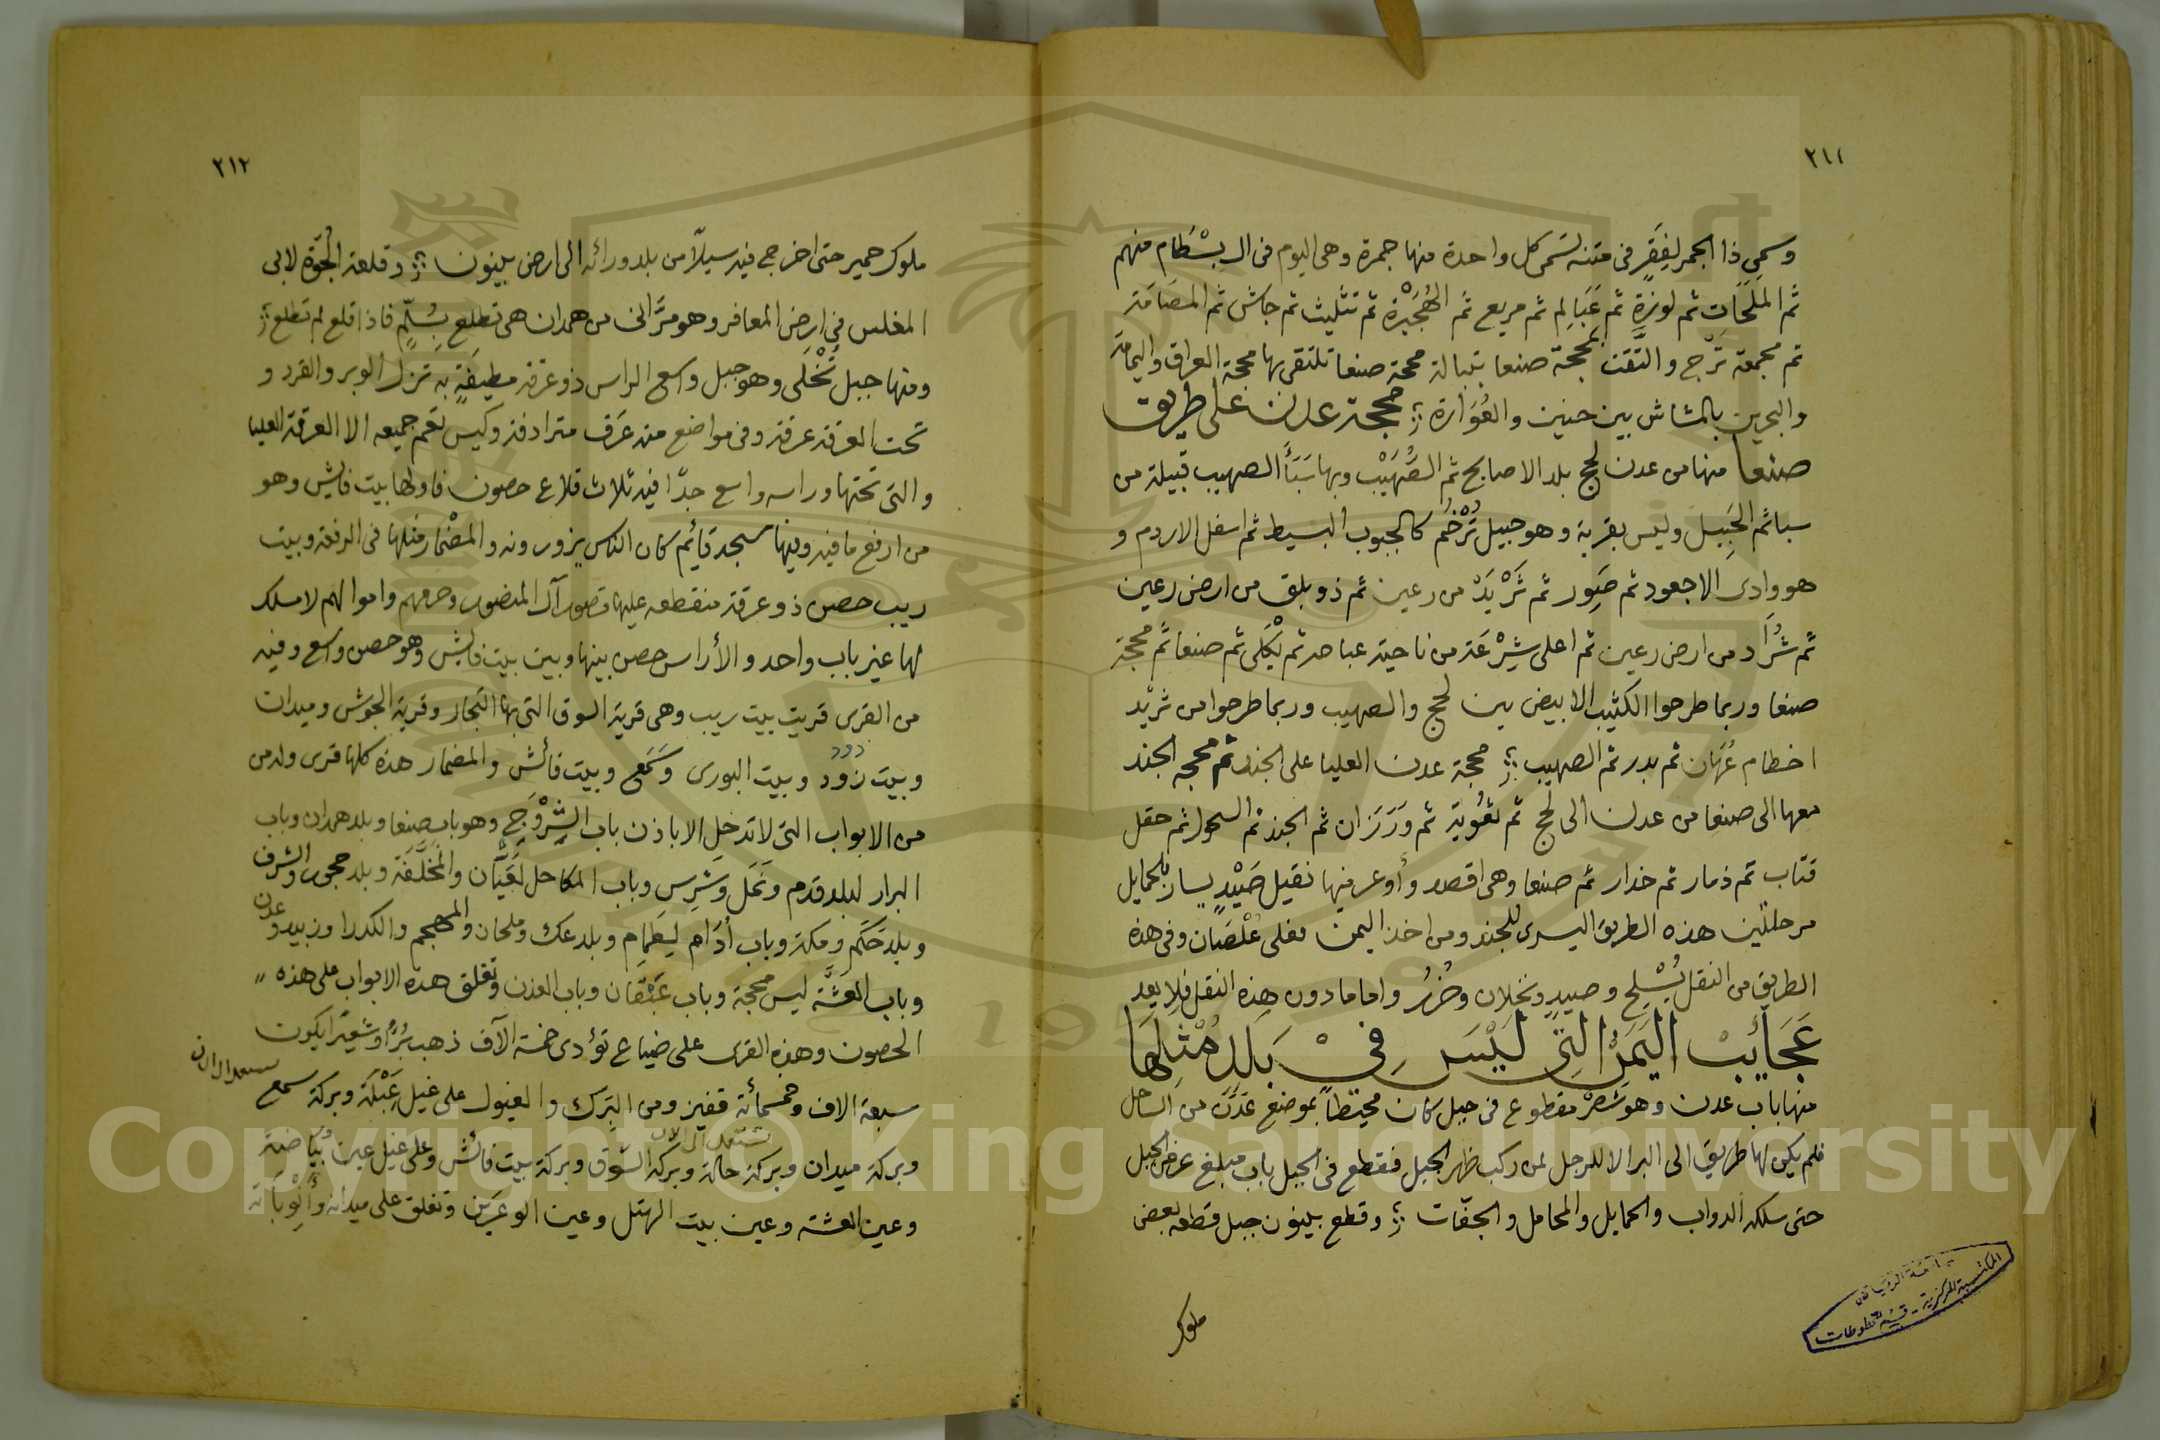 ٢١١
وسمي ذا الجمر لفِقَرٍ في متنه تسمى كل واحدة منها جمرة وهى اليوم فى ال بِسْطام منهم
ثم المَلَحَات ثم لوزة ثم عَبَالم ثم مريع ثم الهُجَيْرة ثم تثليث ثم جاش ثم المصَامَة
ثم مجمعة تَرْج والتقت بمحجة صنعا بتبالة محجة صنعا تلتقى بها محجة العراق واليمامة
والبحرين بالمشاش بين حنين والعُوَارة محجة عدن على طريق
صنعا منها من عدن لحج بلد الاصابح ثم الصُّهَيْب وبها سَبَأ الصهيب قبيلة من
سبا ثم الجَبِيل وليس بقرية وهو جبيل تُرْخُم كالجبوب البسيط ثم اسفل الاردم و
هو وادى الاجعود ثم صَوِر ثم ثَرْيَدْ من رعين ثم ذو بلق من ارض رعين
ثم شُرَاد من ارض رعين ثم اعلى شِرْعَة من ناحية عباصر ثم يَكْلَى ثم صنعا ثم محجة
صنعا وربما طرحوا الكثيب الابيض بين لحج والصهيب وربما طرحوا من ثريد
اخطام عُهَان ثم بدر ثم الصهيب محجة عدن العليا على الجند ثم محجه الجند
معها الى صنعا من عدن الى لحج ثم ثعُوبة ثم وَرَزان ثم الجند ثم السحول ثم حقل
قتاب ثم ذمار ثم خدار ثم صنعا وهى اقصد وأوعر فيها نقيل صَيْدٍ يسار بالحمايل
مرحلتين هذه الطريق اليسرى للجند ومن اخذ اليمن فعلى عُلْصَان وفى هذه
الطريق من النقل يُسْلِح وصيد ونخلان وحُزَرُ واما ما دون هذه النقل فلا يعد
عَجَائب اليَمَن التِى لَيْسَ فِيْ بَلَدٍ مْثِلهَا
منها باب عدن وهو شَصْرٌ مقطوع فى جبل كان محيطاً بموضع عَدَن من الساحل
فلم يكن لها طريق الى البر الا للرجل لمن ركب ظهر الجبل فقطع فى الجبل باب مبلغ عرض الجبل
حتى سلكه الدواب والحمايل والمحامل والجفّات وقطع بينون جبل قطعه بعض
ملوك
جامعة الرياض
المكتبة المركزية - قسم المخطوطات
٢١٢
ملوك حمير حتى اخرج فيه سيلاً من بلد ورائه الى ارض بينون وقلعة الجُوّة لابى
المغلس فى ارض المعافر وهو مُرَّانى من همدان هى تطلع بسُلّمٍ فاذا قلع لم تطلع
ومنها جبل تُخْلَى وهو جبل واسع الراس ذو عرقة مطيفَة به تزل الوبر والقرد و
تحت العرقة عرقة وفى مواضع منه عَرَق مترادفة وليس تعم جميعه الا العرقة العليا
والتى تحتها وراسه واسع جدًّا فيه ثلاث قلاع حصون فاولها بيت فايش وهو
من ارفع ما فيه وفيها مسجد قايم كان الناس يزورونه والمضْمَار مثلها فى الرفعة وبيت
ريب حصن ذو عرقة منقطعه عليها قصور آل المنصور وحرمهم واموالهم لا مسلك
لها غير باب واحد والأراس حصن بينها وبين بيت فايش وهو حصن واسع وفيه
من القرى قريت بيت ريب وهى قرية السوق التى بها التجار وقرية الجوش وميدان
دود
وبيت زود وبيت البورى وسَمَع وبيت فائش والمضمار هذه كلها قرى وله من
من الابواب التى لا تدخل الا باذن باب الشِرْوَجِ وهو باب صنعا وبلد همدان وباب
البرار لبلد قدم ونَمَل وشِرِس وباب المكاحل لعَيَّان والمُخَلَّفَة وبلد حجور والشرف
وبلد حَكَم ومكة وباب أَدَام لِيَعَمام وبلد عك وملحان والمهجم والكدرا وزبيد وعدن
وباب العَشَّة ليس محجة وباب عَيْقَان وباب العدن وتغلق هذه الابواب على هذه
الحصون وهذه القرى على ضياع تؤدى خمسة الآف ذهب بُرًّا وشعيرًا يكون
سبعة الاف وخمسمأئة قفيز ومن البرك والغيول على غيل عِبْلَة وبركة سمع
وبركة ميدان وبركة حالة وبركة السّوق وبركة بيت فائش وعلى غيل عين بُيَاضة
وعين العشة وعين بيت الهتل وعين الوعرَين وتغلق على ميدانه وأَبْوَابَاته
Copyright © King Saud University
1957